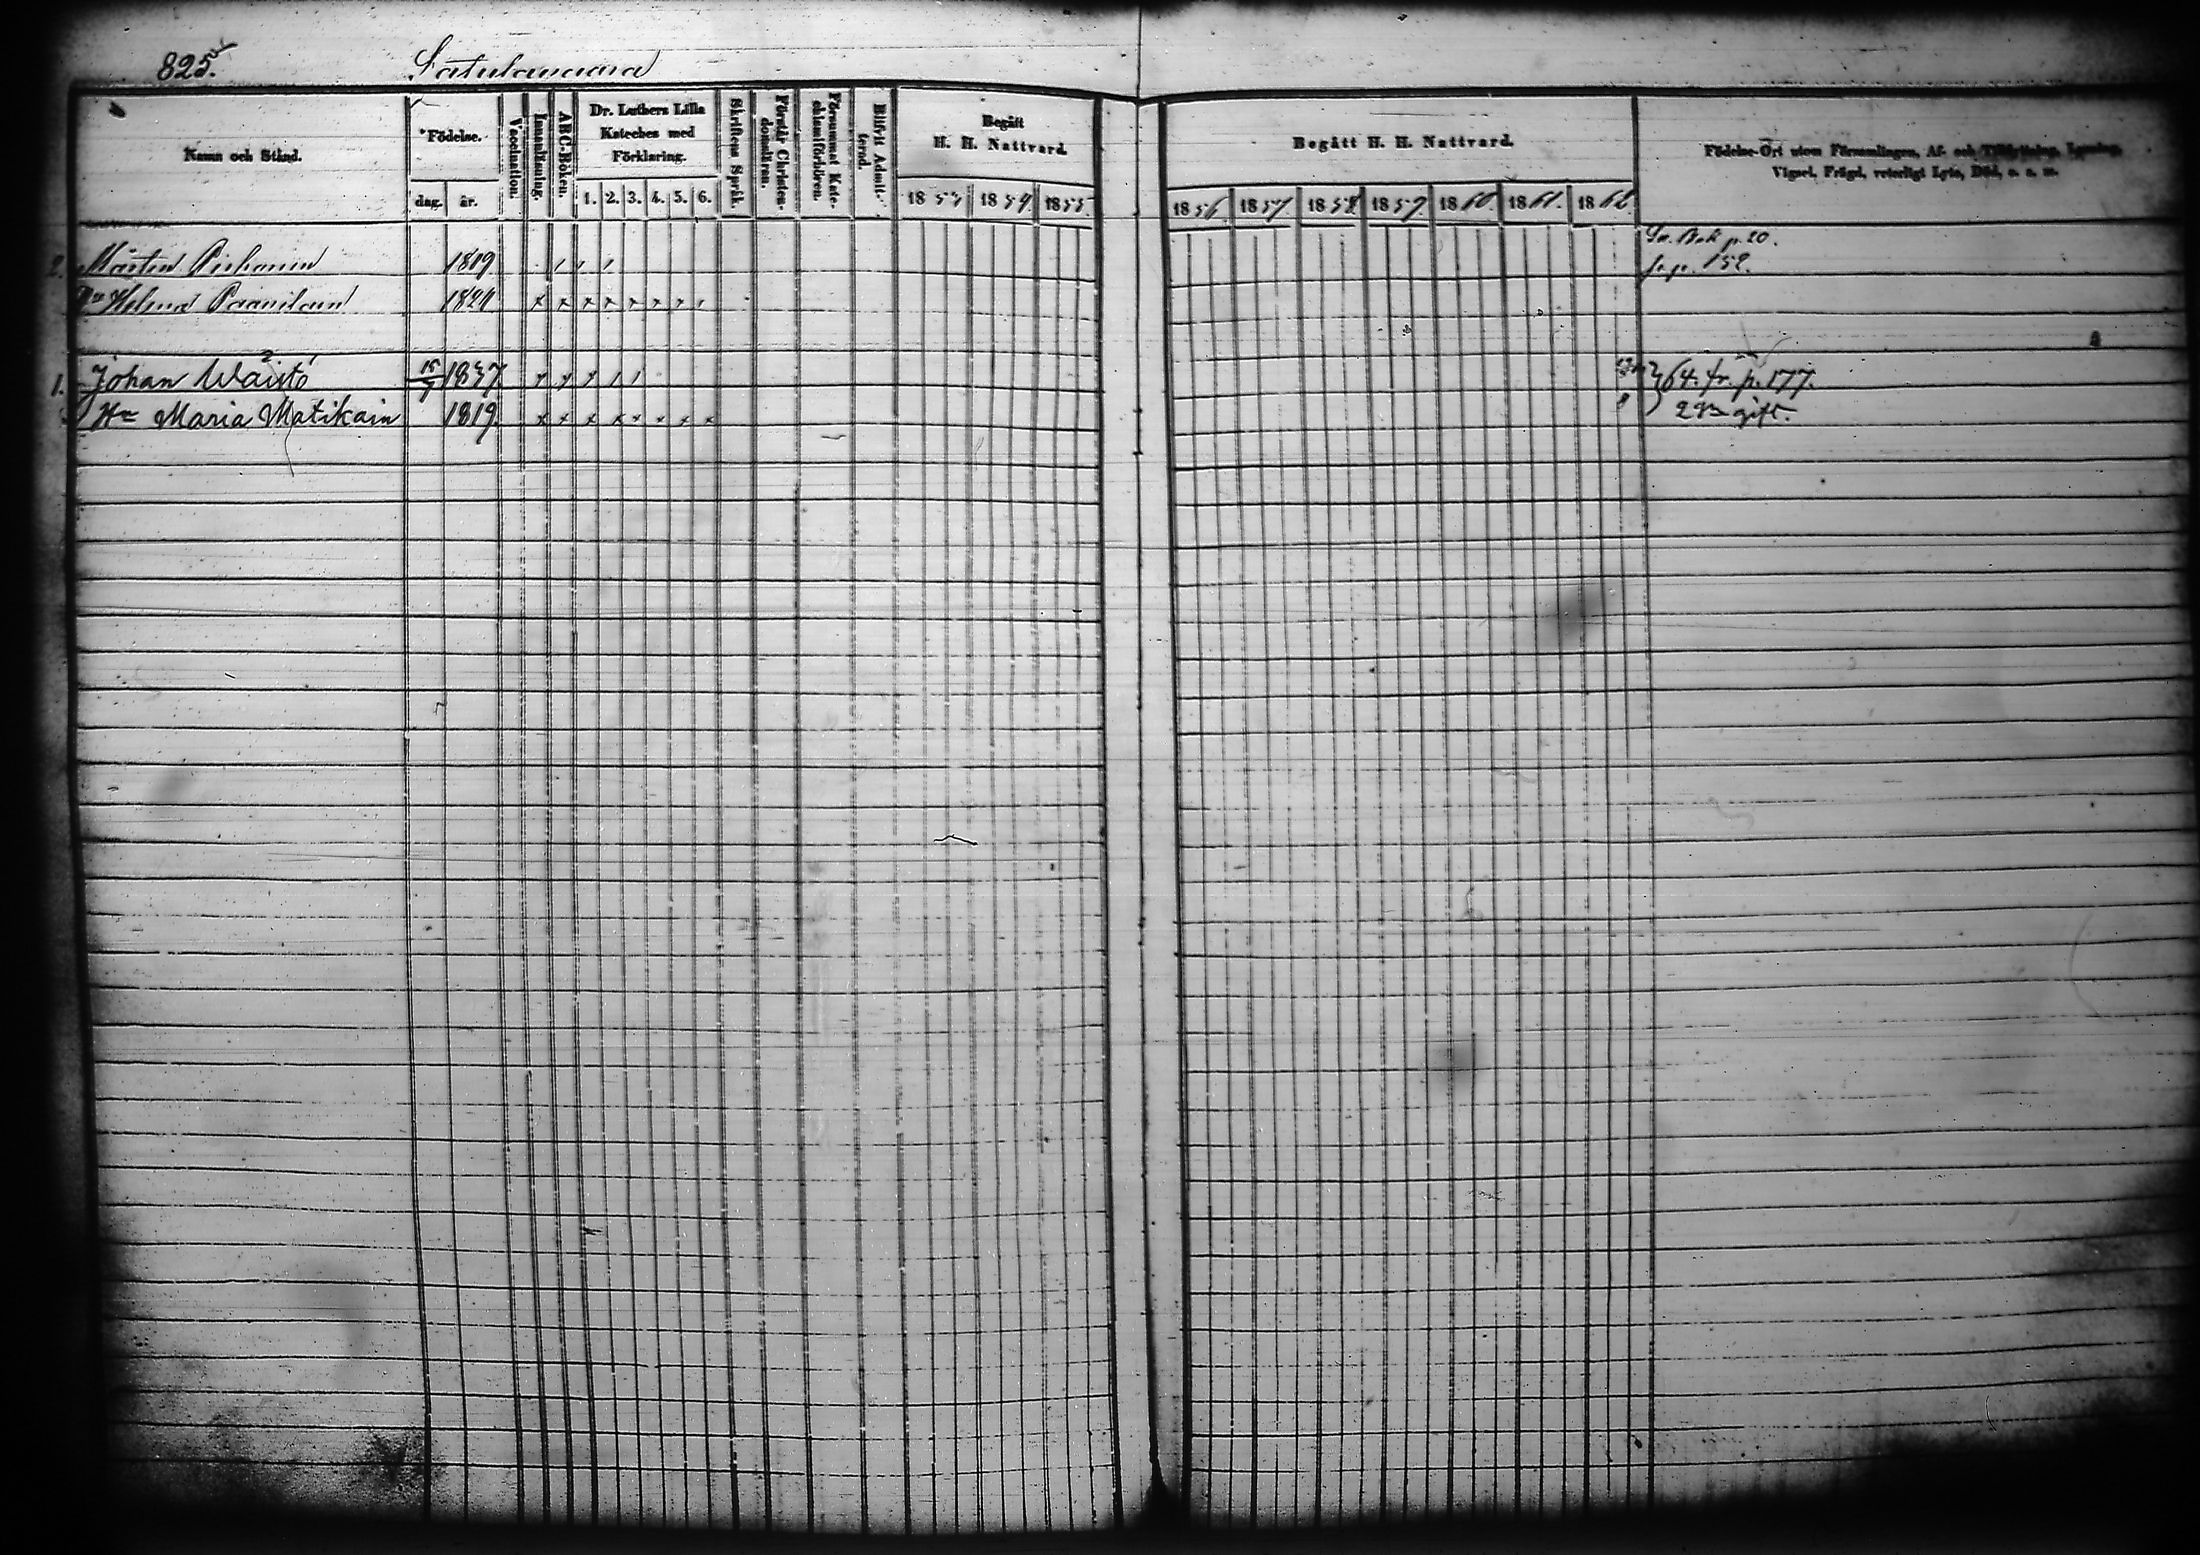 825.
Satulavaara
Namn och Stånd.
Födelse.
dag.
år.
Vaccination.
Innanläsning.
ABC-Boken.
Dr. Luthers Lilla
Kateches med
Förklaring.
1. 2. 3. 4. 5. 6.
Skriftens Språk.
Förstår Christen-
domsläran.
Försummat Kate-
chismiförhören.
Blifvit Admit-
terad.
Begått
H. H. Nattvard.
1853 1854 1855.
Begått H. H. Nattvard.
1856 1857 1858 1859 1860. 1861. 1862.
Födelse-Ort utom Församlingen, Af- och Tillflyttning, Lysning,
Vigsel, Frägd, veterligt Lyte, Död, o. s. m.
p. 20.
2. Mårten 1819 fr p. 152.
Helena 1821
1. Johan Waistö 15/7 1837 64. fr. p. 177.
Hu Maria Matikain 1819. gift.